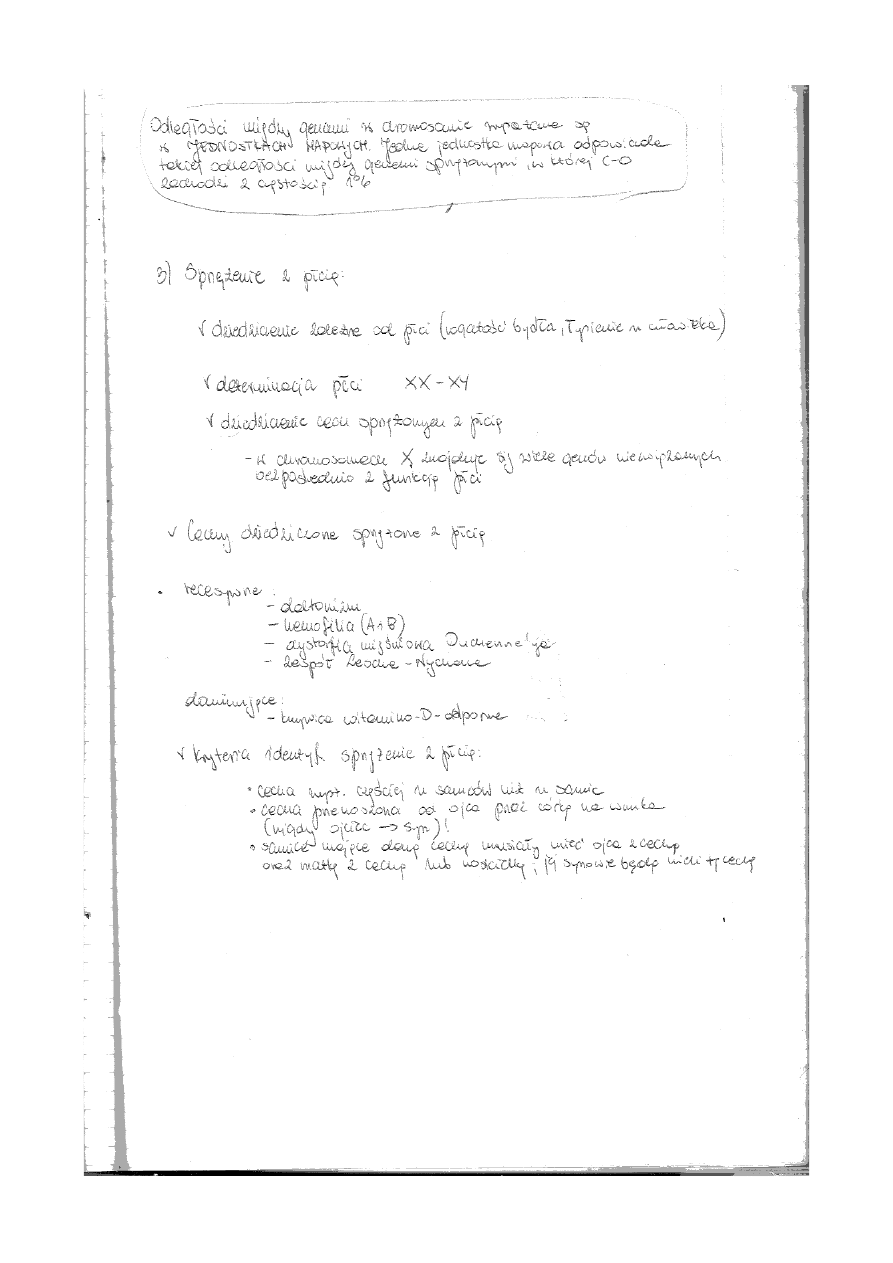 Odległości między genami w chromosomie wyrażane są
w JEDNOSTKACH MAPOWYCH. Jedna jednostka mapowa odpowiada
takiej odległości między genami sprzężonymi, w której C-O
zachodzi z częstością 1%
3) Sprzężenie z płcią:
√ dziedziczenie zależne od płci (rogatość bydła, łysienie u człowieka)
√ determinacja płci XX - XY
√ dziedziczenie cech sprzężonych z płcią
- w chromosomach X znajduje się wiele genów niezwiązanych
bezpośrednio z funkcją płci
√ Cechy dziedziczone sprzężone z płcią
• recesywne:
- daltonizm
- hemofilia (A i B)
- dystrofia mięśniowa Duchenne'ja
- zespół Lescha-Nyhana
dominujące:
- krzywica witamino-D-odporna
√ kryteria identyf. sprzężenia z płcią:
• cecha wyst. częściej u samców niż u samic
• cecha przenoszona od ojca przez córkę na wnuka
(nigdy ojciec → syn)!
• samice mające daną cechę musiały mieć ojca z cechą
oraz matkę z cechą lub nosicielkę, jej synowie będą mieli tę cechę